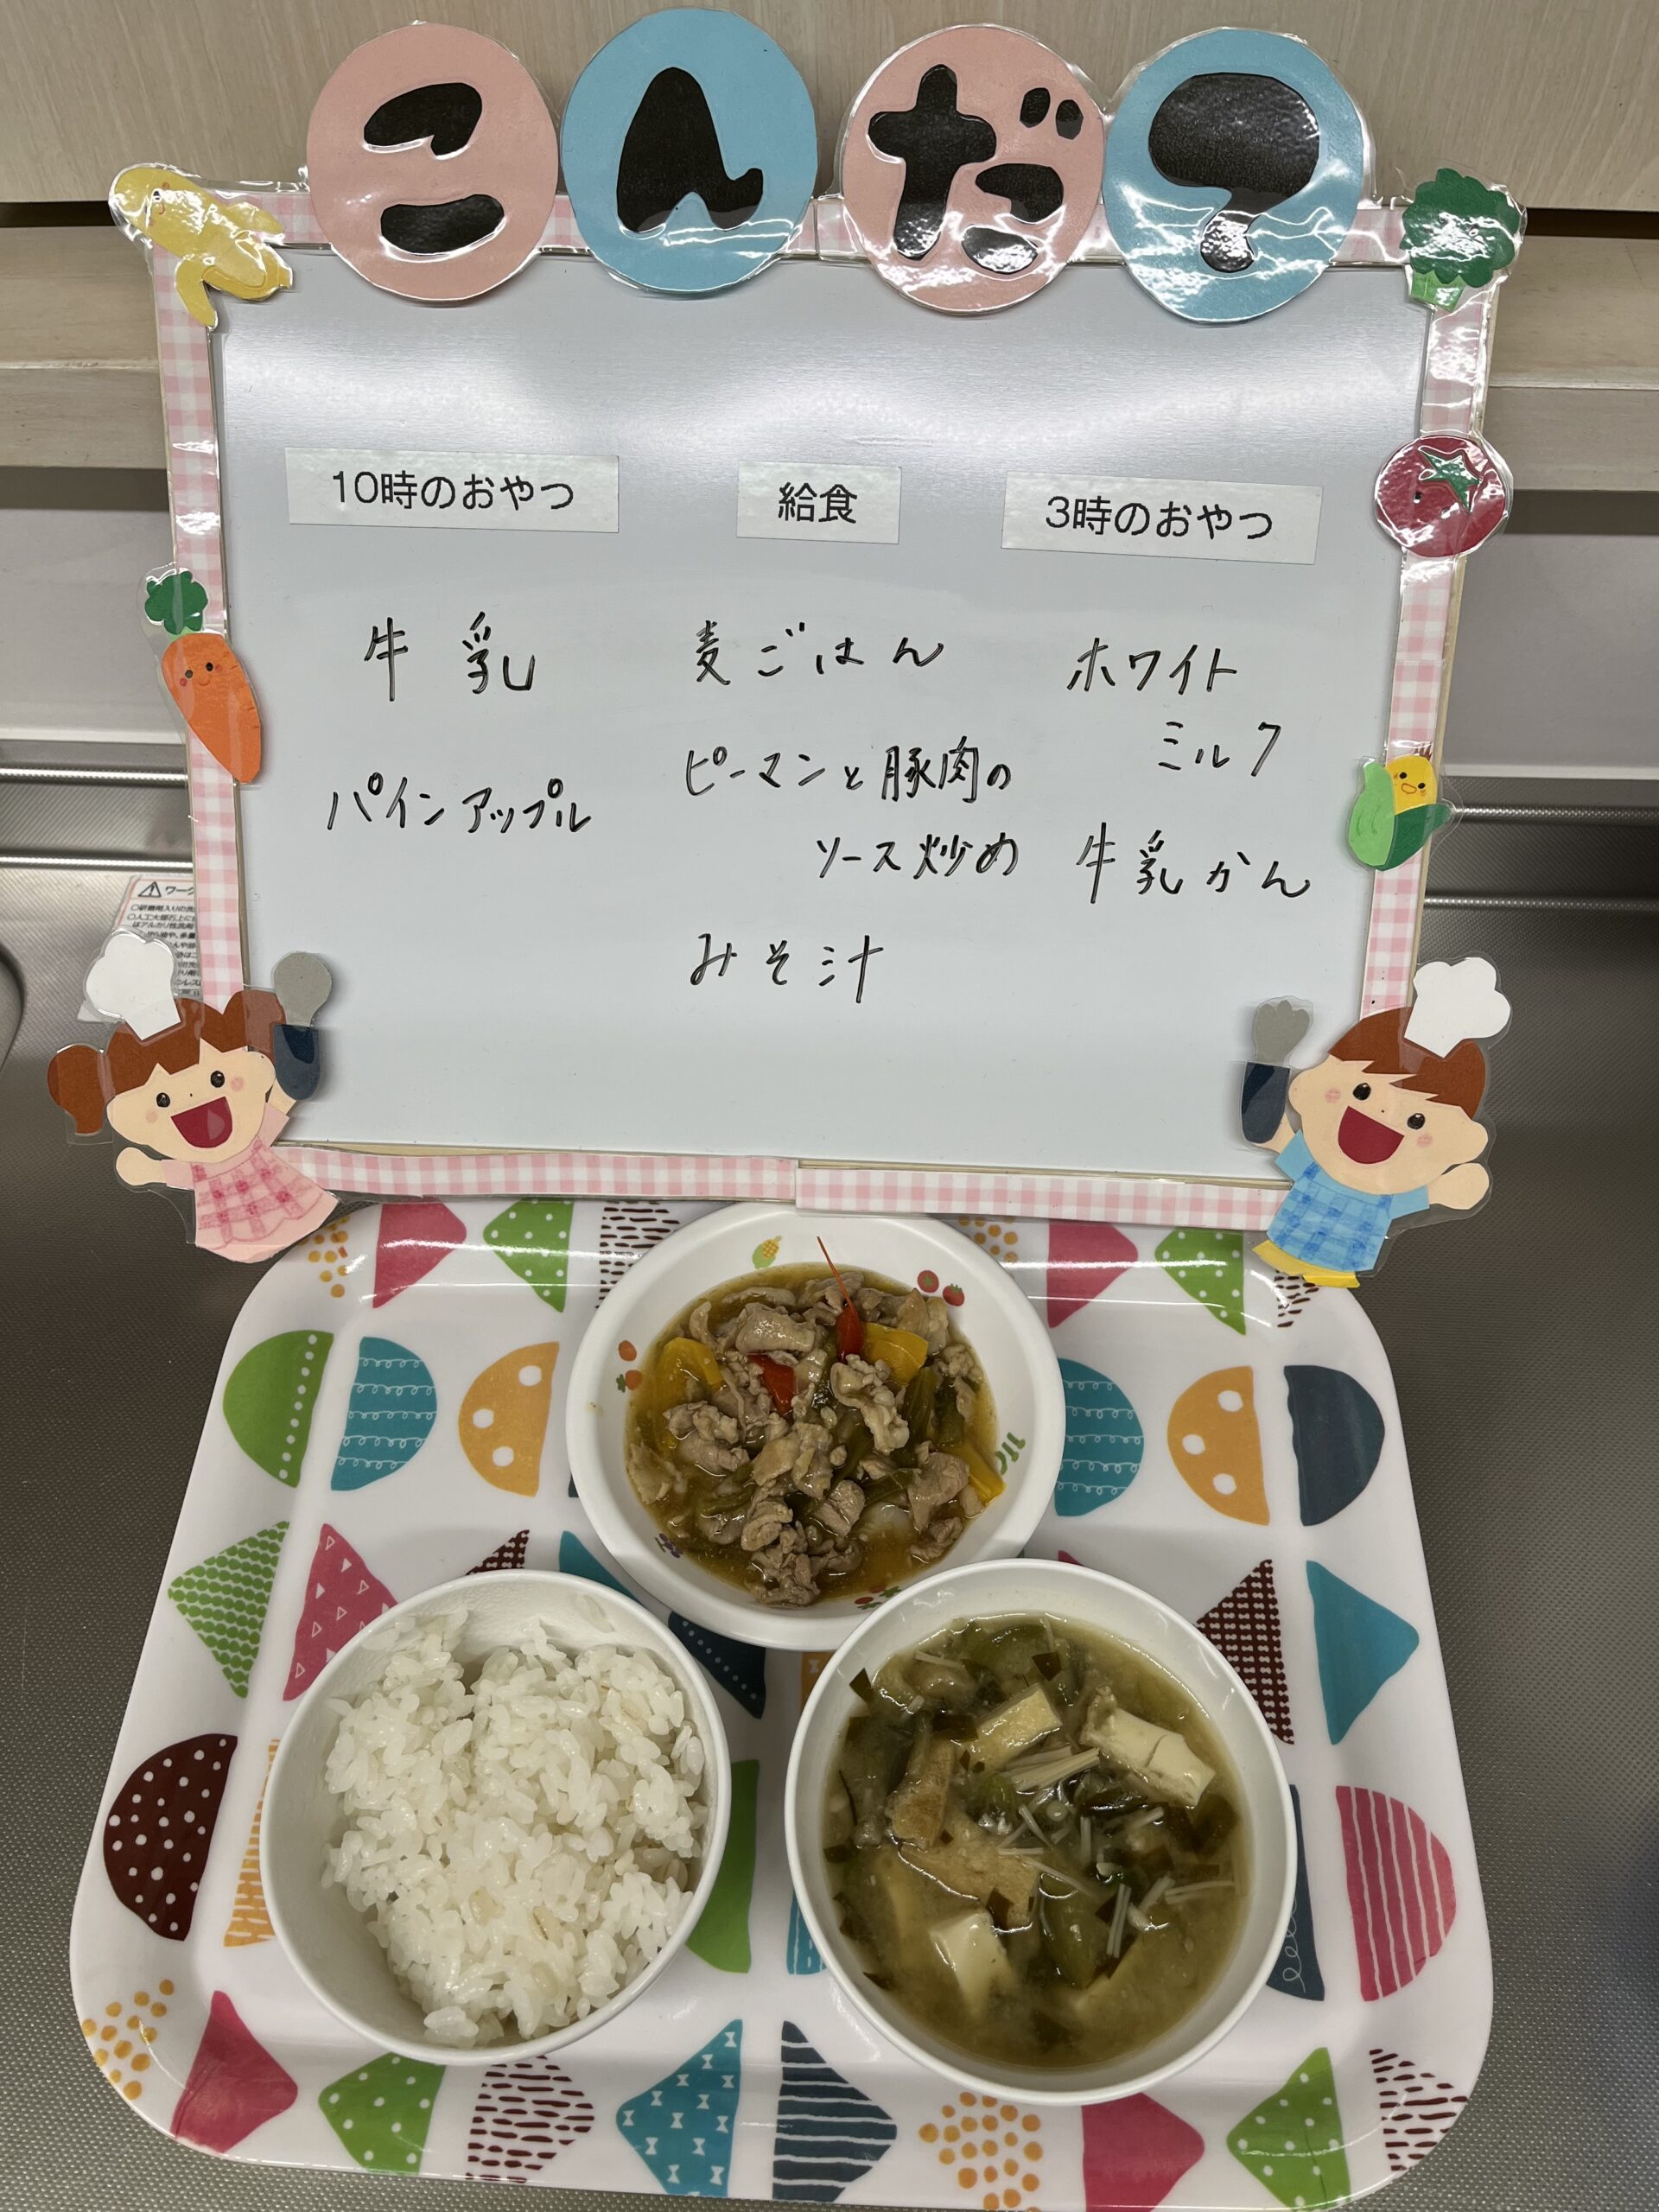 こんだて
10時のおやつ
給食
3時のおやつ
牛乳
パインアップル
麦ごはん
ピーマンと豚肉の
ソース炒め
みそ汁
ホワイト
ミルク
牛乳かん